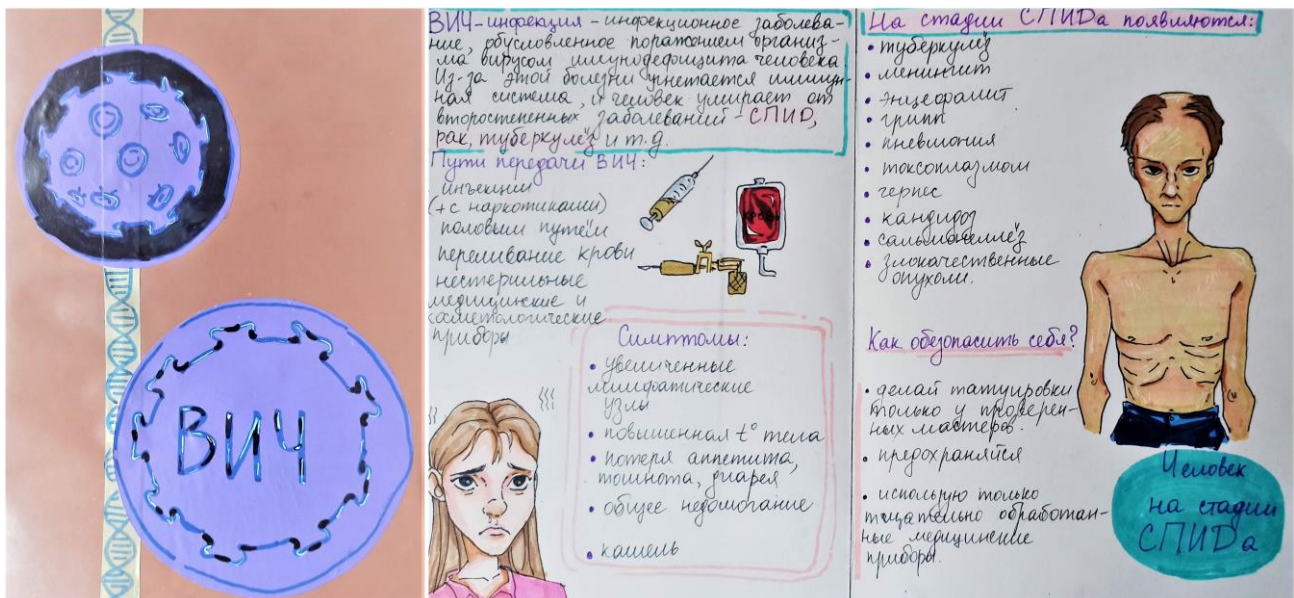 ВИЧ
ВИЧ-инфекция - инфекционное заболева-
ние, обусловленное поражением организ-
ма вирусом имунодефицита человека
Из-за этой болезни угнетается иммун-
ная система, и человек умирает от
второстепенных заболеваний - СПИД,
рак, туберкулёз и т.д.
Пути передачи ВИЧ:
инъекции
(+с наркотиками)
половым путём
переливание крови
нестерильные
медицинские и
косметологические
приборы
кровь
Симптомы:
• увеличенные
лимфатические
узлы
• повышенная t° тела
• потеря аппетита,
тошнота, диарея
• общее недомогание
• кашель
На стадии СПИДа появляются:
• туберкулёз
• менингит
• энцефалит
• грипп
• пневмония
• токсоплазмоз
• герпес
• кандидоз
• сальмонеллёз
• злокачественные
опухоли.
Как обезопасить себя?
• делай татуировки
только у проверен-
ных мастеров.
• предохраняйся
• использую только
тщательно обработан-
ные медицинские
приборы.
Человек
на стадии
СПИДа